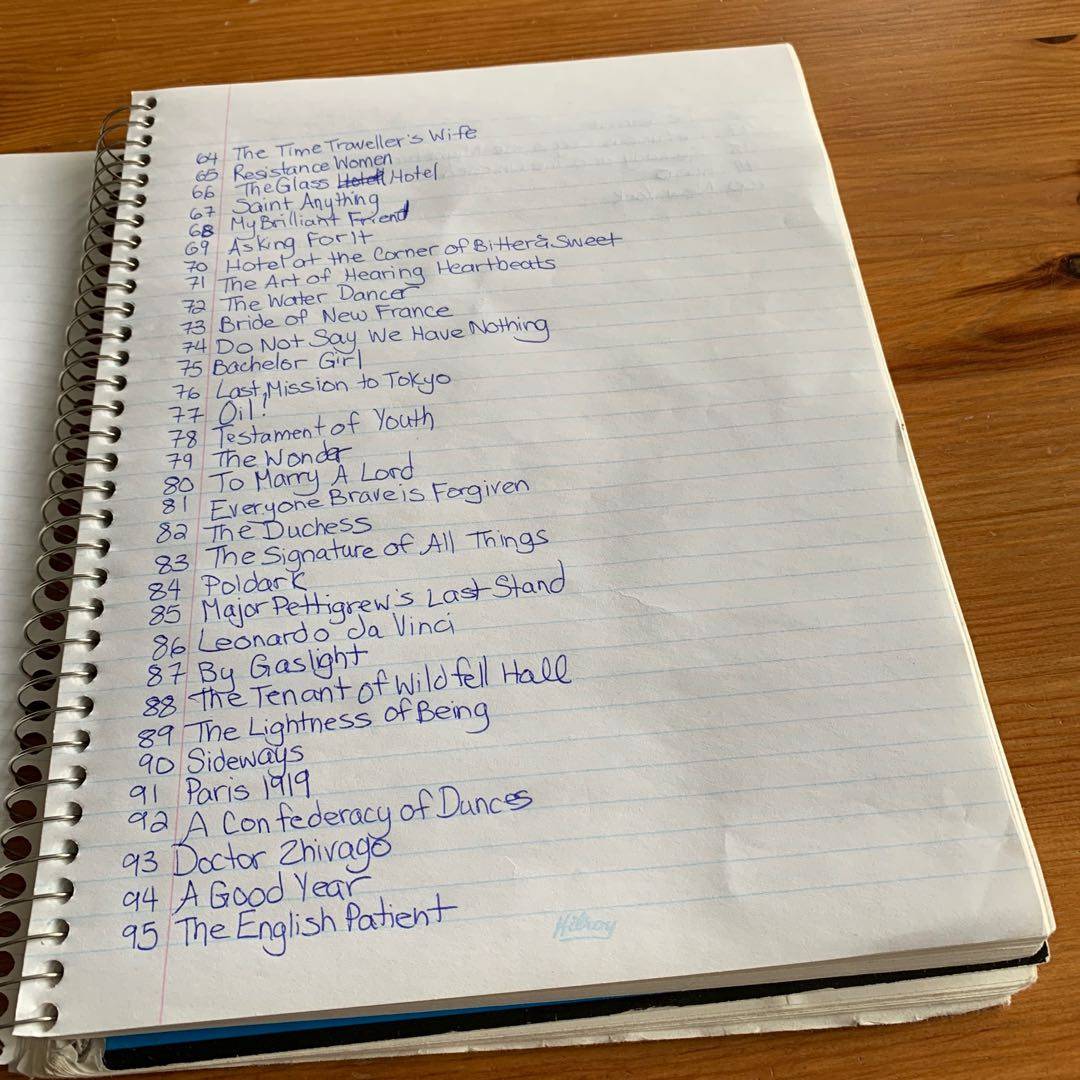 64 The Time Traveller's Wife
65 Resistance Women
66 The Glass Hotel Hotel
67 Saint Anything
68 My Brilliant Friend
69 Asking For It
70 Hotel at the Corner of Bitter & Sweet
71 The Art of Hearing Heartbeats
72 The Water Dancer
73 Bride of New France
74 Do Not Say We Have Nothing
75 Bachelor Girl
76 Last Mission to Tokyo
77 Oil!
78 Testament of Youth
79 The Wonder
80 To Marry A Lord
81 Everyone Brave is Forgiven
82 The Duchess
83 The Signature of All Things
84 Poldark
85 Major Pettigrew's Last Stand
86 Leonardo da Vinci
87 By Gaslight
88 The Tenant of Wildfell Hall
89 The Lightness of Being
90 Sideways
91 Paris 1919
92 A Confederacy of Dunces
93 Doctor Zhivago
94 A Good Year
95 The English Patient
Hilroy